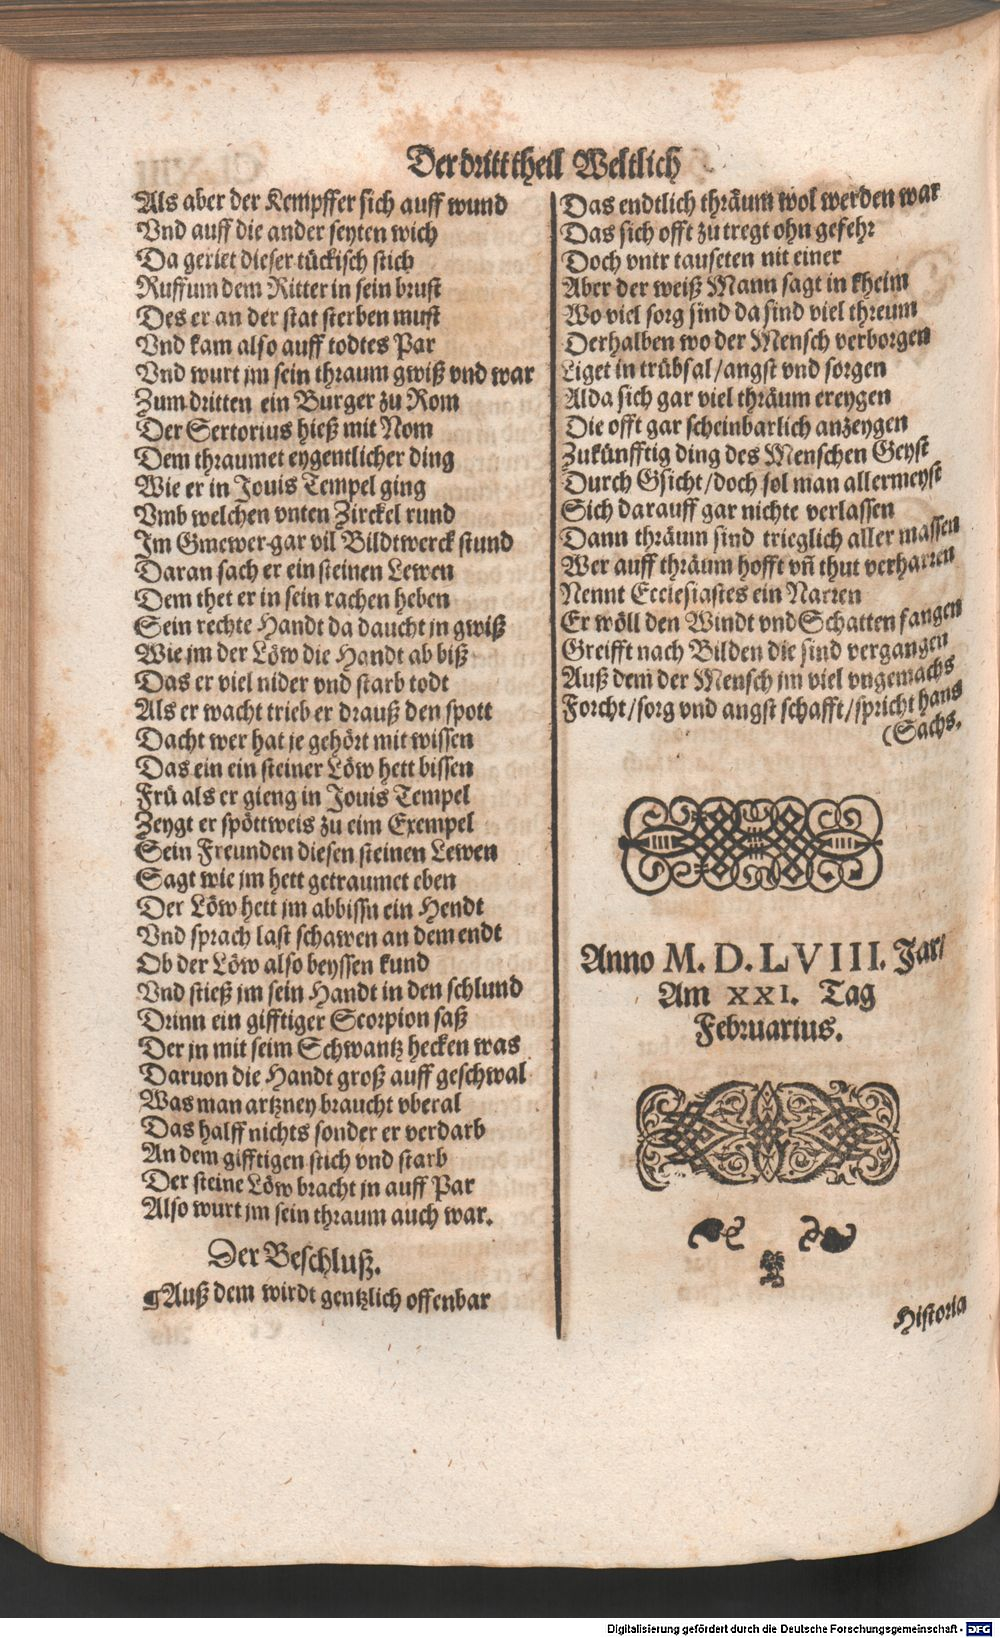 Der dritt theil Weltlich
Als aber der Kempffer sich auff wund
Vnd auff die ander seyten wich
Da geriet dieser tückisch stich
Ruffum dem Ritter in sein brust
Des er an der stat sterben must
Vnd kam also auff todtes Par
Vnd wurt jm sein thraum gwiß vnd war
Zum dritten ein Burger zu Rom
Der Sertorius hieß mit Nom
Dem thraumet eygentlicher ding
Wie er in Jouis Tempel ging
Vmb welchen vnten Zirckel rund
Im Gmewer gar vil Bildtwerck stund
Daran sach er ein steinen Lewen
Dem thet er in sein rachen heben
Sein rechte Handt da daucht jn gwiß
Wie jm der Löw die Handt ab biß
Das er viel nider vnd starb todt
Als er wacht trieb er drauß den spott
Dacht wer hat je gehört mit wissen
Das ein ein steiner Löw hett bissen
Frü als er gieng in Jouis Tempel
Zeygt er spöttweis zu eim Exempel
Sein Freunden diesen steinen Lewen
Sagt wie jm hett getraumet eben
Der Löw hett jm abbissn ein Hendt
Vnd sprach last schawen an dem endt
Ob der Löw also beyssen kund
Vnd stieß jm sein Handt in den schlund
Drinn ein gifftiger Scorpion saß
Der jn mit seim Schwantz hecken was
Daruon die Handt groß auff geschwal
Was man artzney braucht vberal
Das halff nichts sonder er verdarb
An dem gifftigen stich vnd starb
Der steine Löw bracht jn auff Par
Also wurt jm sein thraum auch war.
Der Beschluß.
¶Auß dem wirdt gentzlich offenbar
Das endtlich thräum wol werden war
Das sich offt zu tregt ohn gefehr
Doch vntr tauseten nit einer
Aber der weiß Mann sagt in kheim
Wo viel sorg sind da sind viel threum
Derhalben wo der Mensch verborgen
Liget in trübsal/angst vnd sorgen
Alda sich gar viel thräum ereygen
Die offt gar scheinbarlich anzeygen
Zukünfftig ding des Menschen Geyst
Durch Gsicht/doch sol man allermeyst
Sich darauff gar nichte verlassen
Dann thräum sind trieglich aller massen
Wer auff thräum hofft vñ thut verharren
Nennt Ecclesiastes ein Narren
Er wöll den Windt vnd Schatten fangen
Greifft nach Bilden die sind vergangen
Auß dem der Mensch jm viel vngemachs
Forcht/sorg vnd angst schafft/spricht hans
(Sachs.
Anno M. D. LVIII. Jar/
Am XXI. Tag
Februarius.
Historia
Digitalisierung gefördert durch die Deutsche Forschungsgemeinschaft - DFG